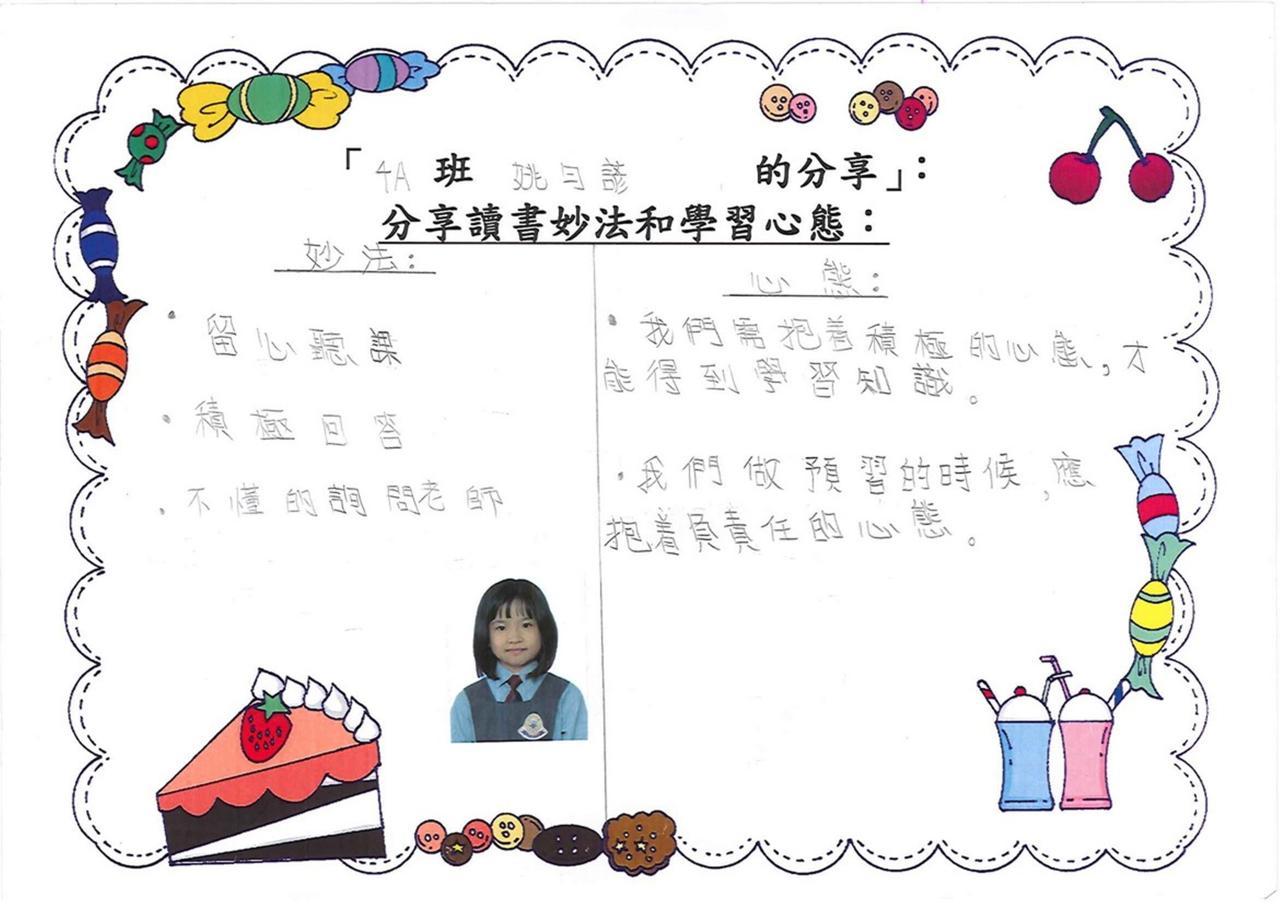 「4A 班 姚曰諺 的分享」：
分享讀書妙法和學習心態：
妙法：
· 留心聽課
· 積極回答
· 不懂的詢問老師
心態：
· 我們需抱着積極的心態，才
能得到學習知識。
· 我們做預習的時候，應
抱着負責任的心態。